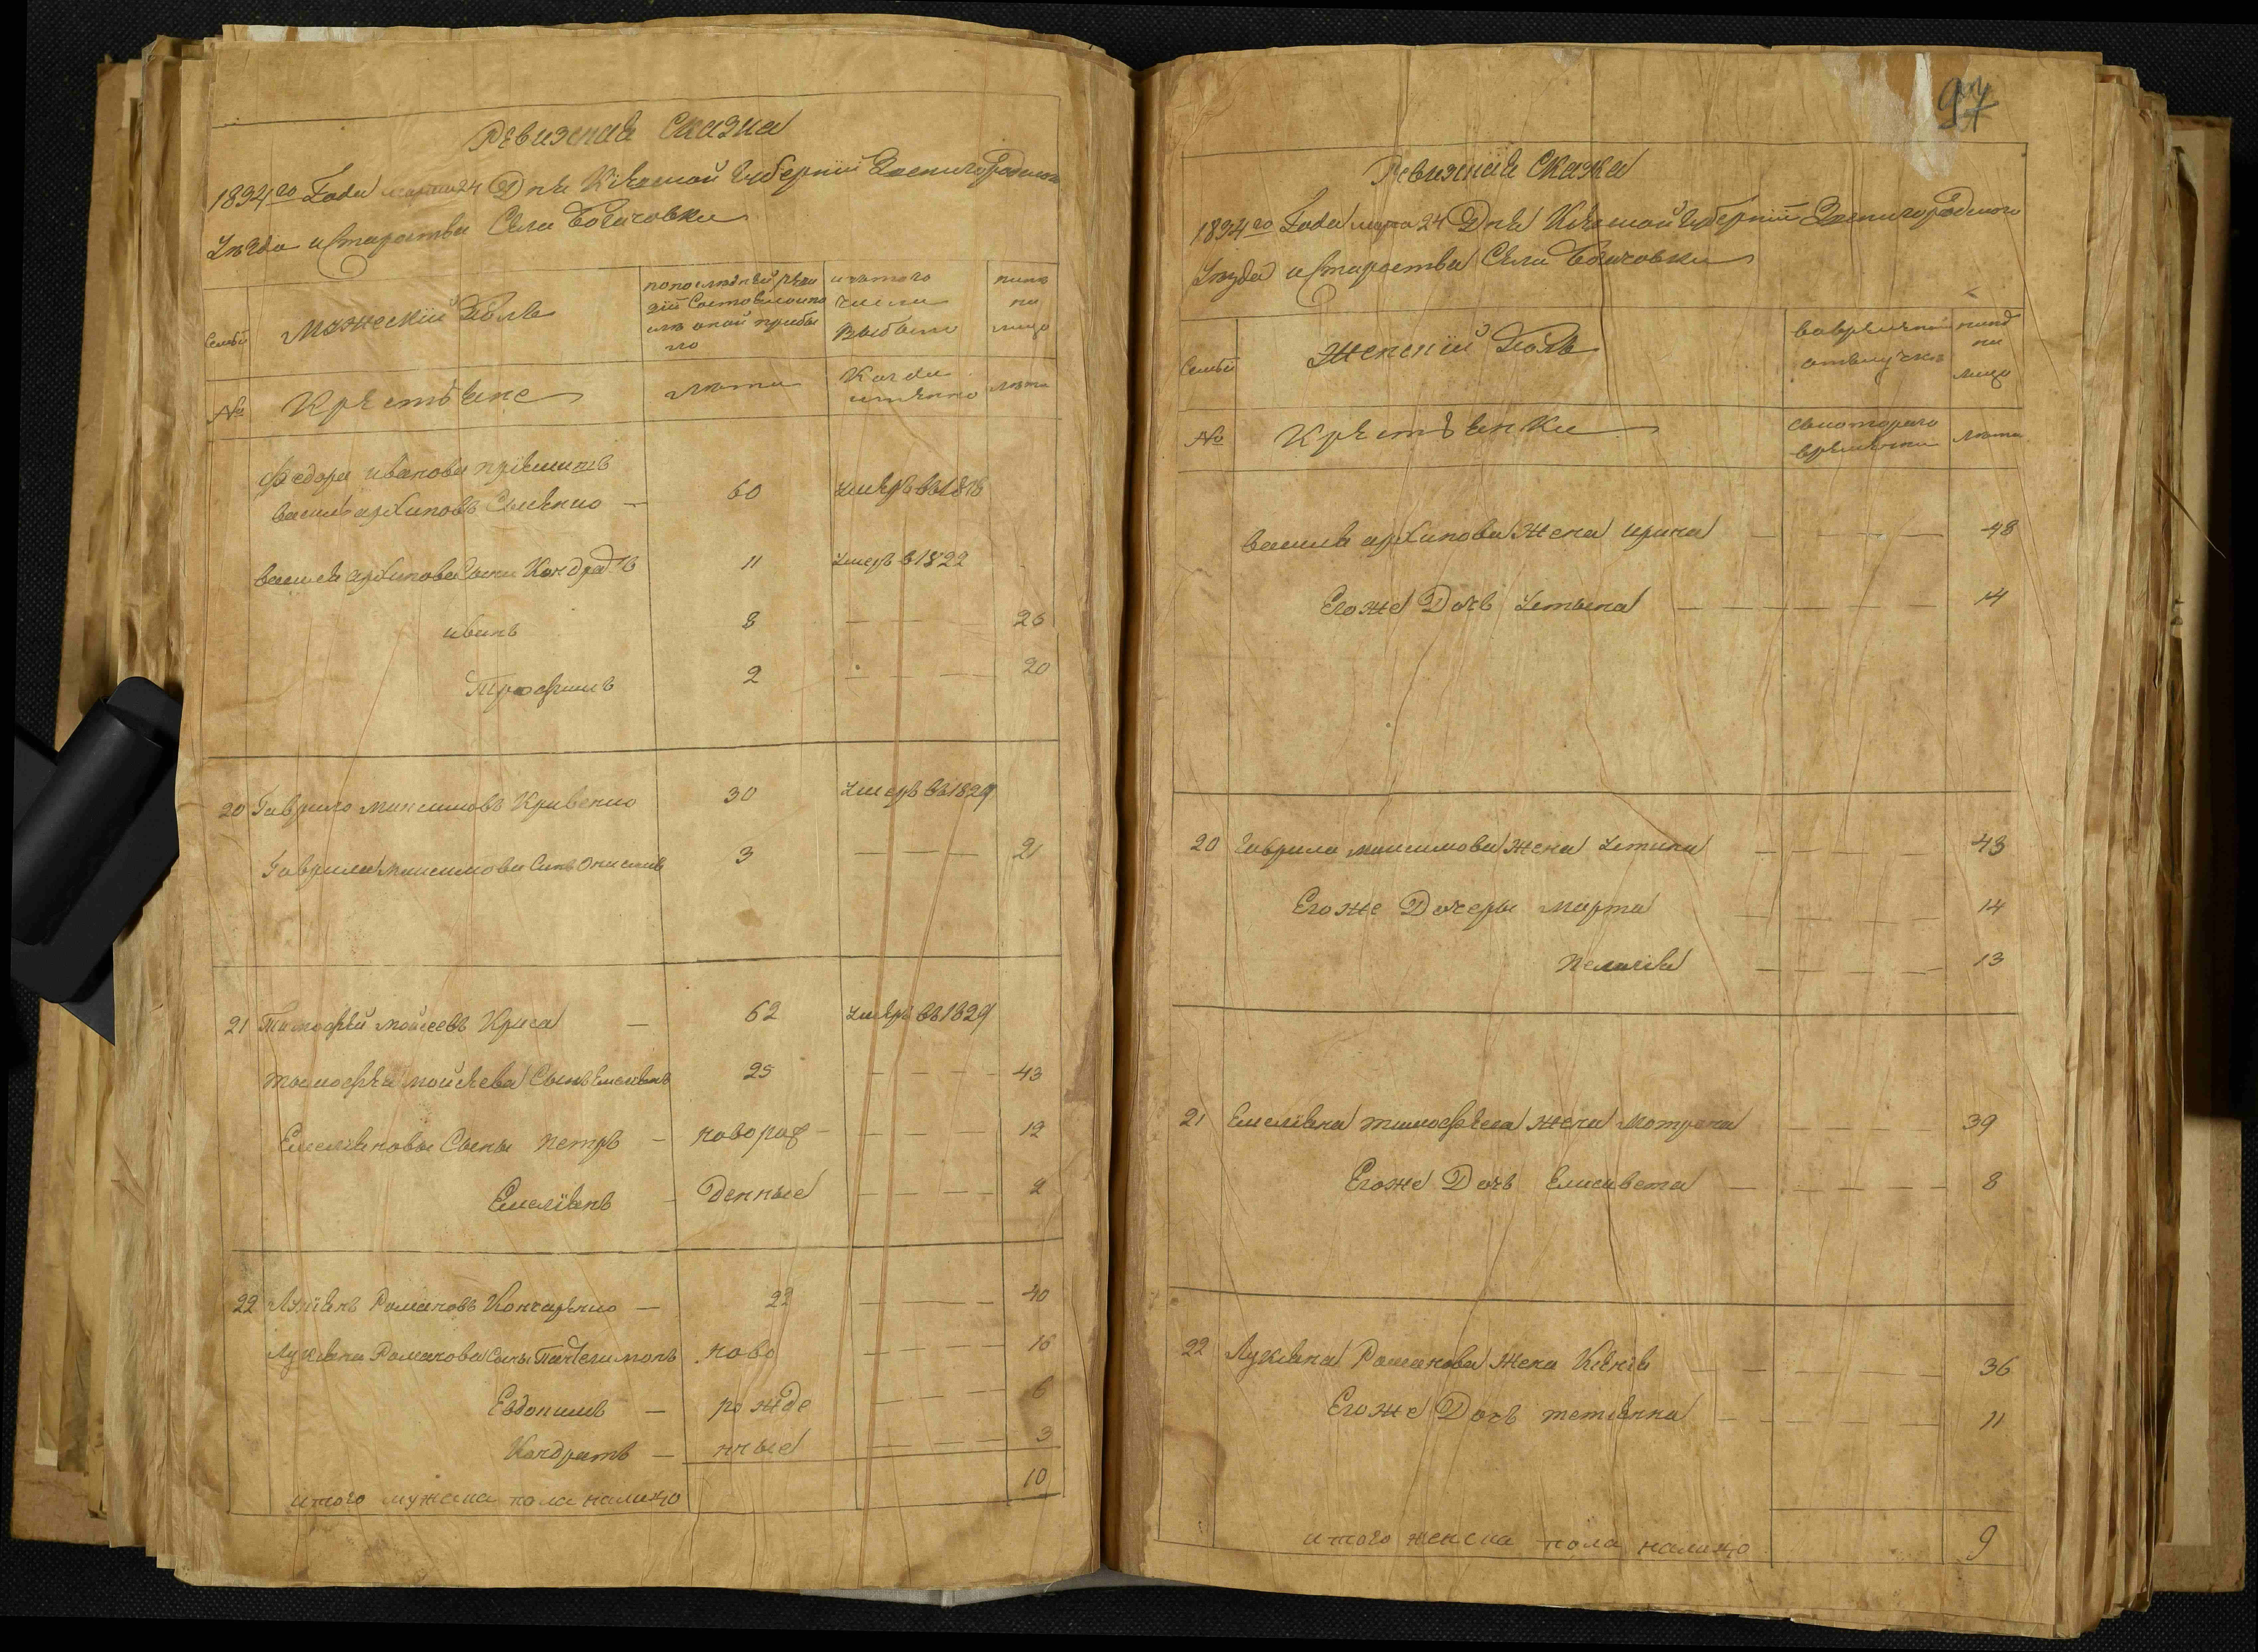 Ревизская Сказка
1834го Года марта 24 Дня Кіевской Губерніи Звенигородского
Уезда и Староства Села Богачовки
Семьи
Мужескій Полъ
по последней реви
зіи Состояло и по
сле оной прибы
ло
и съ того
числа
Выбыло
ныне
на
лицо
№
Крестьяне
лета
Когда
именно
лета
Федора Иванова пріемышъ
Василь архиповъ — 60 Умеръ въ 1816
Василя архипова Сыны Кондратъ 11 Умеръ в 1822
иванъ 8 — — — 26
Трофимъ 2 — — — 20
20 Гаврило Максимовъ Кривенко 30 Умеръ въ 1829
Гаврила Максимова Сынъ Онисимъ 3 — — — 21
21 Тимофей Мойсеевъ Криса — 62 Умеръ въ 1829
Тимофея Мойсеева Сынъ Емельянъ 25 — — — 43
Емельяновы Сыны Петръ — новорож — — — — 12
Емеліянъ — Денные — — — 2
22 Лукіянъ Романовъ Кончаренко — 22 — — — 40
Лукіяна Романова Сыны Пантелимонъ ново — — — 16
Евдокимъ — рожде — — — 6
Кондратъ — нные — — — 3
итого мужеска пола налицо 10
97
Ревизская Сказка
1834го Года марта 24 Дня Кіевской Губерніи Звенигородского
Уезда и Староства Села Богачовки
Семьи
Женскій Полъ
во временной
отлучке
ныне
на
лицо
№
Крестьянки
съ которого
времени
лета
Василя архипова Жена Ирина — — — — 48
Его же Дочь Устына — — — — 14
20 Гаврила Максимова Жена Устина — — — — 43
Его же Дочеры Марта — — — — 14
Пелагія — — — — 13
21 Емеліяна Тимофеева Жена Мотрона — — — — 39
Его же Дочь Елисавета — — — — 8
22 Лукіяна Романова Жена Ксенія — — — — 36
Его же Дочь Тетіянна — — — — 11
итого женска пола налицо 9